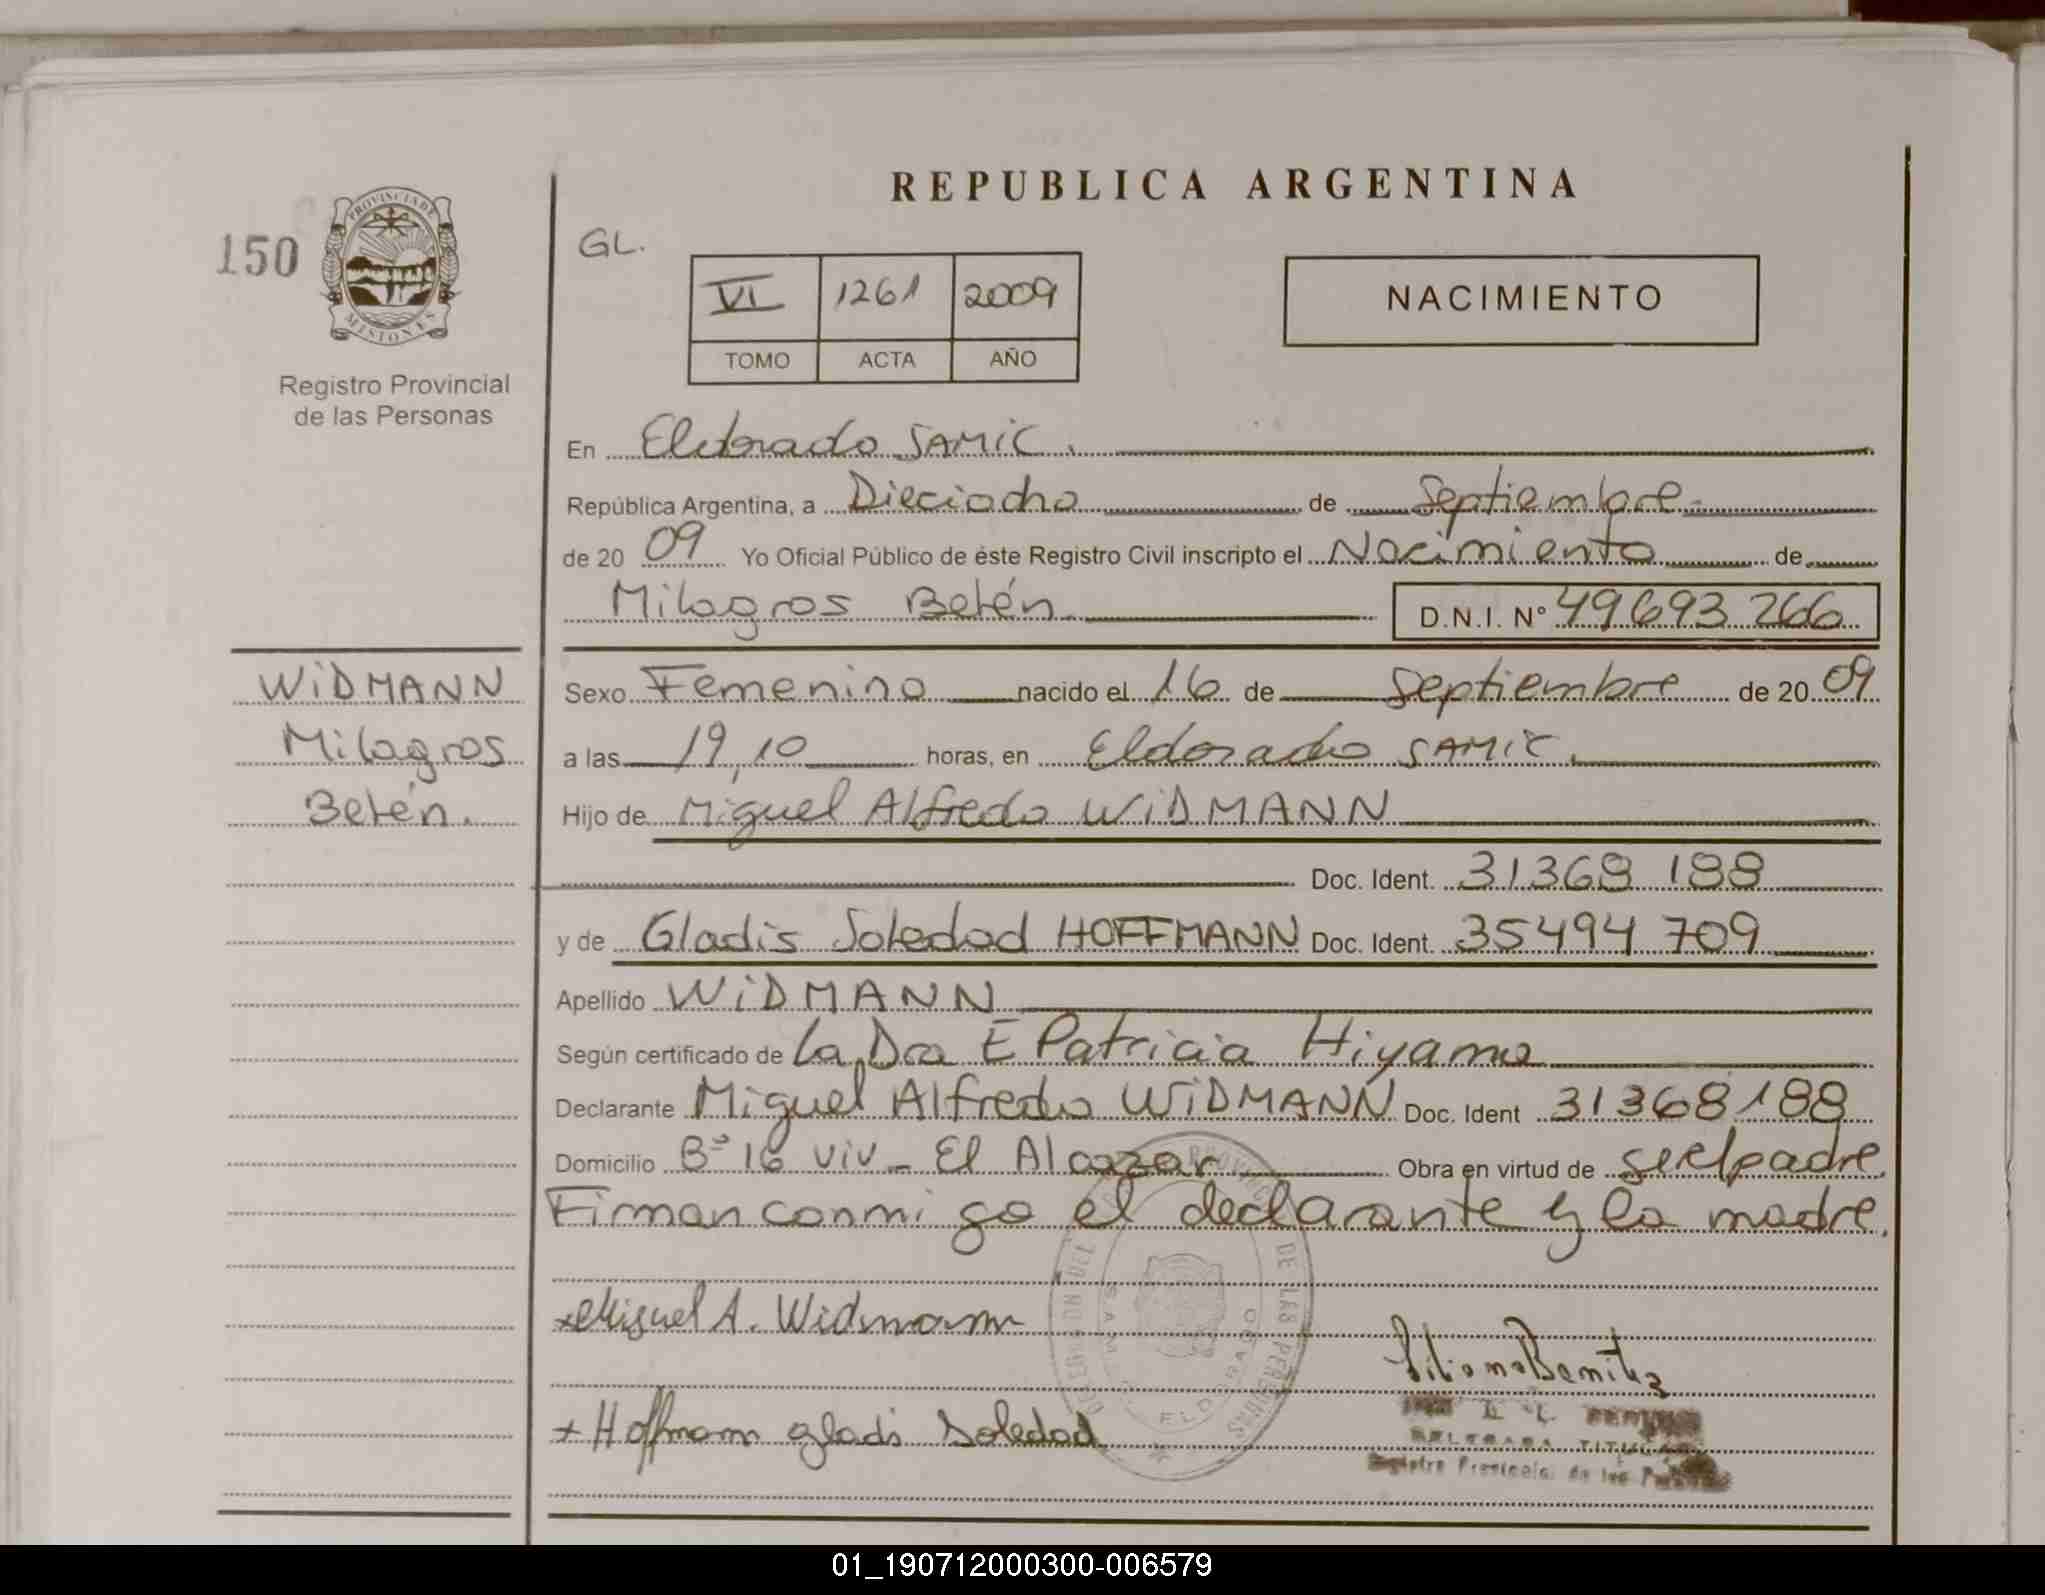 REPUBLICA ARGENTINA
150
PROVINCIA DE
MISIONES
Registro Provincial
de las Personas
GL.
VI 1261 2009
TOMO ACTA AÑO
NACIMIENTO
En Eldorado SAMIC.
República Argentina, a Dieciocho de Septiembre
de 20 09 Yo Oficial Público de éste Registro Civil inscripto el Nacimiento de
Milagros Belén D.N.I. Nº 49693 266
WiDMANN
Milagros
Belén.
Sexo Femenino nacido el 16 de Septiembre de 20 09
a las 19,10 horas, en Eldorado SAMIC.
Hijo de Miguel Alfredo WiDMANN
Doc. Ident. 31368 188
y de Gladis Soledad HOFFMANN Doc. Ident. 35494 709
Apellido WiDMANN
Según certificado de La Dra E Patricia Hiyama
Declarante Miguel Alfredo WiDMANN Doc. Ident 31368188
Domicilio Bº 16 viv - El Alcazar Obra en virtud de ser el padre.
Firman conmigo el declarante y la madre.
x Miguel A. Widmann
Liliana Benitez
x Hoffmann gladi Soledad
DELEGADA TITULAR
Registro Provincial de las Personas
ELDORADO
01_190712000300-006579